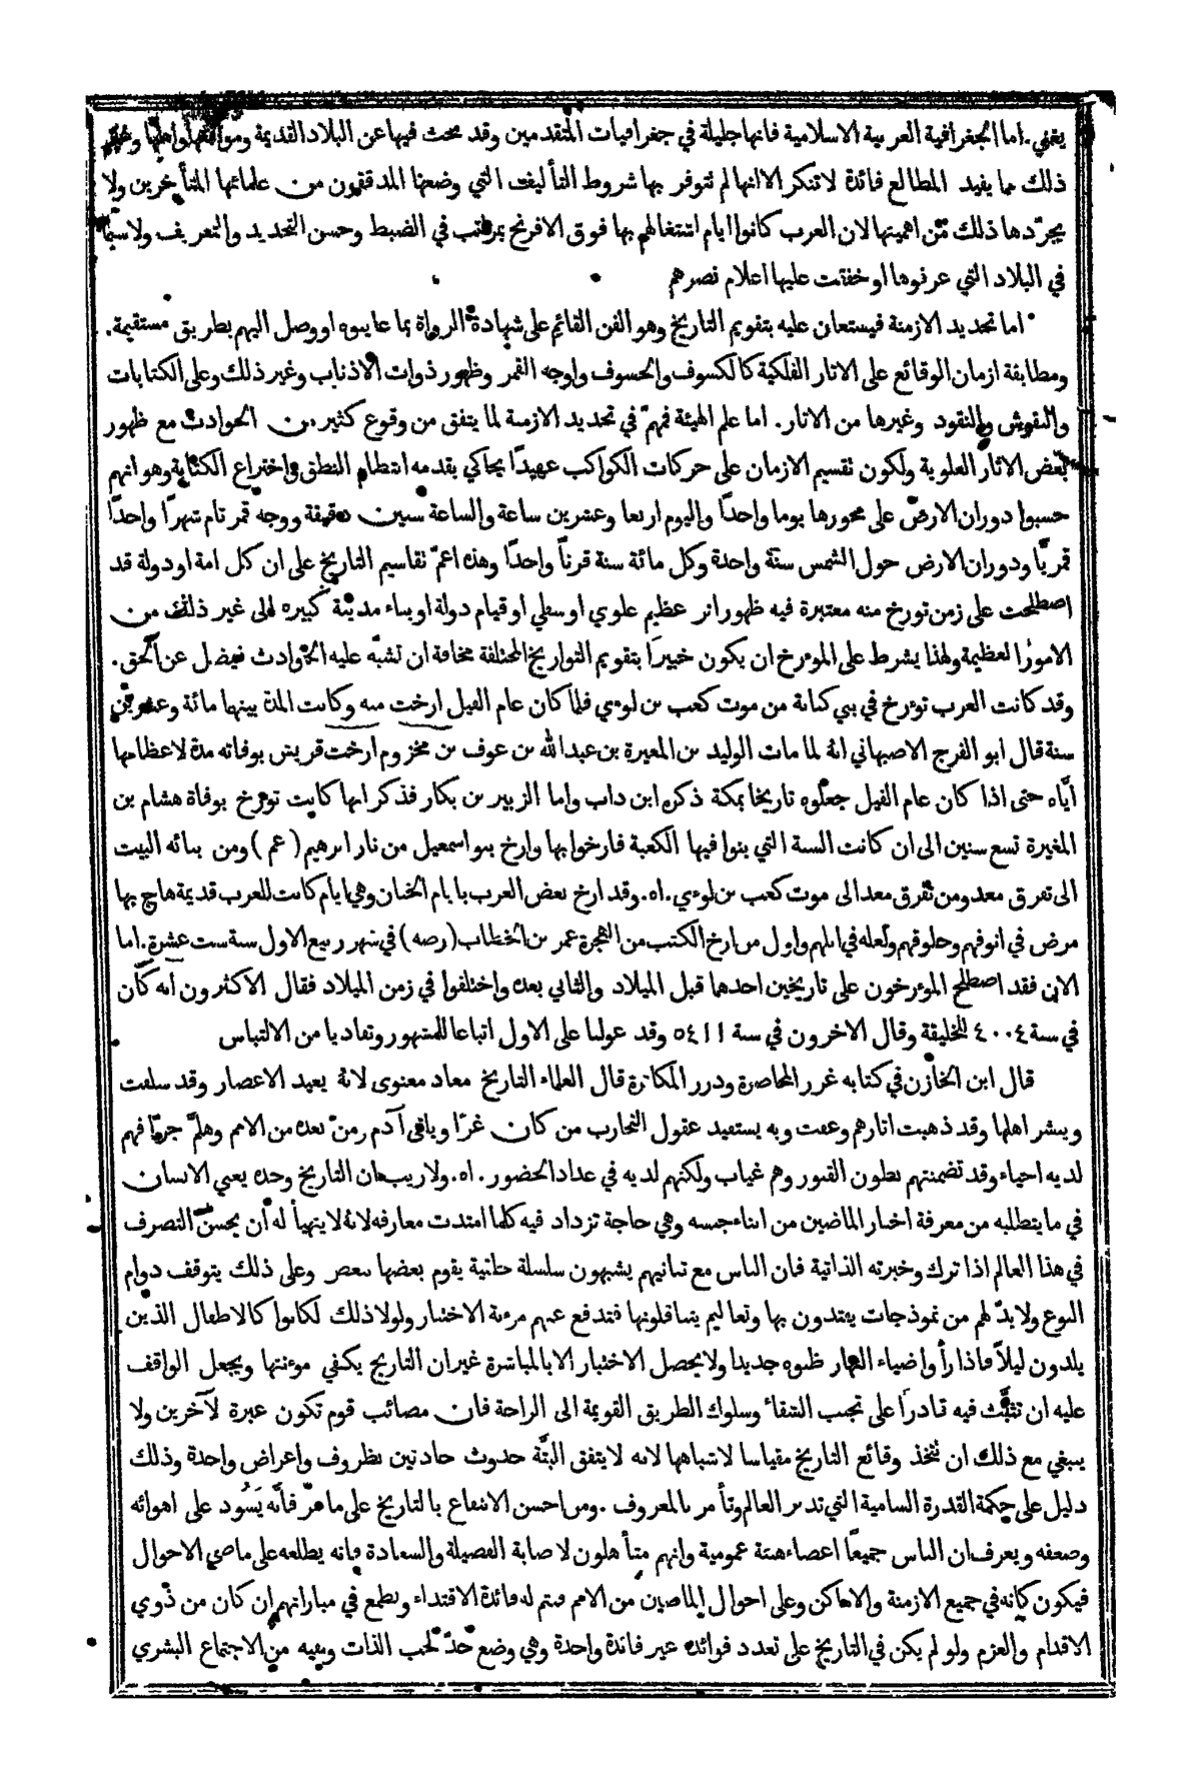 يغني. اما الجغرافية العربية الاسلامية فانها جليلة في جغرافيات المتقدمين وقد بحث فيها عن البلاد القديمة ومواقعها واهلها وغير
ذلك مما يفيد المطالع فائدة لا تنكر الا انها لم نتوفر بها شروط التأليف التي وضعها المدققون من علمائها المتأخرين ولا
يجرّدها ذلك من اهميتها لان العرب كانوا ايام اشتغالهم بها فوق الافرنج بمراتب في الضبط وحسن التحديد والتعريف ولا سيّما
في البلاد التي عرفوها او خفقت عليها اعلام نصرهم
اما تحديد الازمنة فيستعان عليه بتقويم التاريخ وهو الفن القائم على شهادة الرواة بما عاينوه او وصل اليهم بطريق مستقيمة.
ومطابقة ازمان الوقائع على الاثار الفلكية كالكسوف والخسوف واوجه القمر وظهور ذوات الاذناب وغير ذلك وعلى الكتابات
والنقوش والنقود وغيرها من الاثار. اما علم الهيئة فمهمّ في تحديد الازمنة لما يتفق من وقوع كثير من الحوادث مع ظهور
بعض الاثار العلوية ولكون نقسيم الازمان على حركات الكواكب عهيدًا يحاكي بقدمه انتظام النطق واختراع الكتابة وهو انهم
حسبوا دوران الارض على محورها يوما واحدًا واليوم اربعا وعشرين ساعة والساعة ستين دقيقة ووجه قمر تام شهرًا واحدًا
قمريًّا ودوران الارض حول الشمس سنة واحدة وكل مائة سنة قرناً واحدًا وهذه اعمّ نقاسيم التاريخ على ان كل امة او دولة قد
اصطلحت على زمن تورخ منه معتبرة فيه ظهور اثر عظيم علوي او سفلي او قيام دولة او بناء مدينة كبيره الى غير ذلك من
الامور العظيمة ولهذا يشرط على المورخ ان يكون خبيرًا بتقويم التواريخ المختلفة مخافة ان تشبّه عليه الحوادث فيضل عن الحق.
وقد كانت العرب تؤرخ في بني كنانة من موت كعب بن لوءي فلما كان عام الفيل ارخت منه وكانت المدة بينهما مائة وعشرين
سنة قال ابو الفرج الاصبهاني انه لما مات الوليد بن المغيرة بن عبد الله بن عوف بن مخزوم ارخت قريش بوفاته مدة لاعظامها
ايّاه حتى اذا كان عام الفيل جعلوه تاريخا بمكة ذكره ابن داب واما الزبير بن بكار فذكر انها كانت توءرخ بوفاة هشام بن
المغيرة تسع سنين الى ان كانت السنة التي بنوا فيها الكعبة فارخوا بها وارخ بنو اسمعيل من نار ابرهيم (عم) ومن بنائه البيت
الى تفرق معد ومن تفرق معد الى موت كعب بن لوءي. اه. وقد ارخ بعض العرب بايام الخنان وهي ايام كانت للعرب قديمة هاج بها
مرض في انوفهم وحلوقهم ولعله في ابلهم واول من ارخ الكتب من الهجرة عمر بن الخطاب (رضه) في شهر ربيع الاول سنة ست عشرة. اما
الان فقد اصطلح الموءرخون على تاريخين احدهما قبل الميلاد والثاني بعده واختلفوا في زمن الميلاد فقال الاكثرون انه كان
في سنة ٤٠٠٤ للخليقة وقال الاخرون في سنة ٥٤١١ وقد عولنا على الاول اتباعا للمشهور وتفاديا من الالتباس
قال ابن الخازن في كتابه غرر المحاصرة ودرر المكاثرة قال العلماء التاريخ معاد معنوى لانه يعيد الاعصار وقد سلفت
وينشر اهلها وقد ذهبت اثارهم وعفت وبه يستفيد عقول التجارب من كان غرّا ويلقى آدم ومن بعده من الامم وهلمّ جرّا فهم
لديه احياء وقد تضمنتهم بطون القبور وهم غياب ولكنهم لديه في عداد الحضور. اه. ولا ريب ان التاريخ وحده يعني الانسان
في ما يتطلبه من معرفة اخبار الماضين من ابناء جنسه وهي حاجة تزداد فيه كلما امتدت معارفه لانه لا يتهيأ له أن يحسن التصرف
في هذا العالم اذا ترك وخبرته الذاتية فان الناس مع تباينهم يشبهون سلسلة حلقية يقوم بعضها ببعض وعلى ذلك يتوقف دوام
النوع ولا بدّ لهم من نموذجات يقتدون بها وتعاليم يتناقلونها فتدفع عنهم مرءنة الاختبار ولولا ذلك لكانوا كالاطفال الذين
يلدون ليلاً فاذا رأوا ضياء النهار ظنوه جديدا ولا يحصل الاختبار الا بالمباشرة غير ان التاريخ يكفي موءنتها ويجعل الواقف
عليه ان تثبّت فيه قادرًا على تجنب الشقاء وسلوك الطريق القويمة الى الراحة فان مصائب قوم تكون عبرة لآخرين ولا
ينبغي مع ذلك ان نتخذ وقائع التاريخ مقياسا لاشباهها لانه لا يتفق البتّة حدوث حادثين بظروف واعراض واحدة وذلك
دليل على حكمة القدرة السامية التي تدبر العالم وتأمر بالمعروف. ومن احسن الانتفاع بالتاريخ على ما هرّ فأنّه يَسُود على اهوائه
وضعفه ويعرف ان الناس جميعًا اعضاء هيئة عمومية وانهم متأهلون لاصابة الفضيلة والسعادة فانه يطلعه على ماضي الاحوال
فيكون كانه في جميع الازمنة والاماكن وعلى احوال الماضين من الامم فتتم له فائدة الاقتداء ويطمع في مباراتهم ان كان من ذوي
الاقدام والعزم ولو لم يكن في التاريخ على تعدد فوائده غير فائدة واحدة وهي وضع حدّ لحب الذات ونفيه من الاجتماع البشري